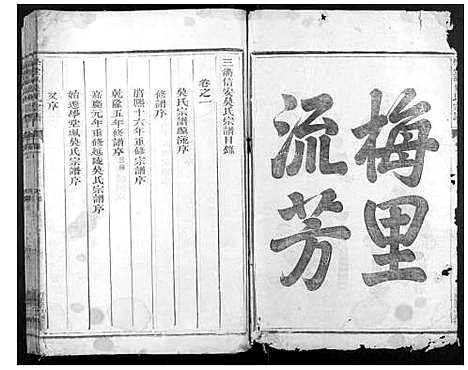 梅里
流芳
三衢信安吳氏宗譜目錄
卷之一
吳氏宗譜源流序
修譜序
康熙十六年重修宗譜序
乾隆五年修譜序
嘉慶元年重修延陵吳氏宗譜序
始遷學堂颯吳氏宗譜序
又序